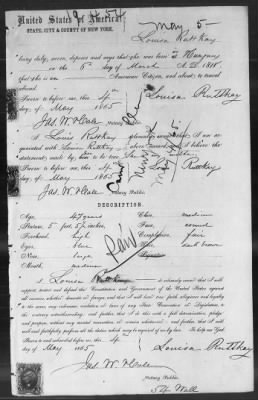 United States of America
May 5
STATE, CITY & COUNTY OF NEW YORK.
Louisa Ruttkay
being duly sworn, deposes and says that she was born in Hungary
on the 6th day of March A.D. 1818,
that she is an American Citizen, and about to travel
abroad.
Sworn to before me, this 4th
day of May 1865
Louisa Ruttkay
Jas. W. Hale
Notary Public.
I, Louis Ruttkay
I am acquainted with Louisa Ruttkay
statements made by
Sworn to before me, this 4th
day of May 1865
Ruttkay
Jas. W. Hale
Notary Public.
DESCRIPTION.
Age, 47 years
Chin, medium
Stature, 5 feet
Face, round
Forehead, high
Complexion, fair
Eyes, blue
Hair, dark brown
Nose, large
Mouth, medium
Paid
I, Louisa Ruttkay do solemnly swear that I will
support, protect and defend the Constitution and Government of the United States against
all enemies, whether domestic or foreign, and that I will bear true faith, allegiance and loyalty
to the same, any ordinance, resolution or law of any State Convention or Legislature, to
the contrary notwithstanding; and further, that I do this with a full determination, pledge
and purpose, without any mental reservation or evasion whatsoever; and further, that I will
well and faithfully perform all the duties which may be required of me by law. So help me God.
Sworn to and subscribed before me, this 4th
day of May 1865
Louisa Ruttkay
Jas. W. Hale
Notary Public.
54 Wall